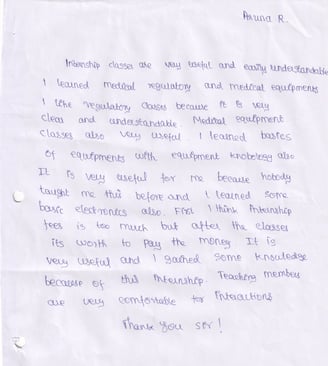 Aruna R.
Internship classes are very useful and easily understandable
I learned medical regulatory and medical equipments
I like regulatory classes because it is very
clear and understandable. Medical equipment
classes also very useful. I learned basics
of equipments with equipment knoblegy also
It is very useful for me because nobody
taught me this before and I learned some
basic electronics also. First I think internship
fees is too much but after the classes
its worth to pay the money It is
very useful and I gained some knowledge
because of this internship Teaching members
are very comfortable for interactions
Thank you sir!